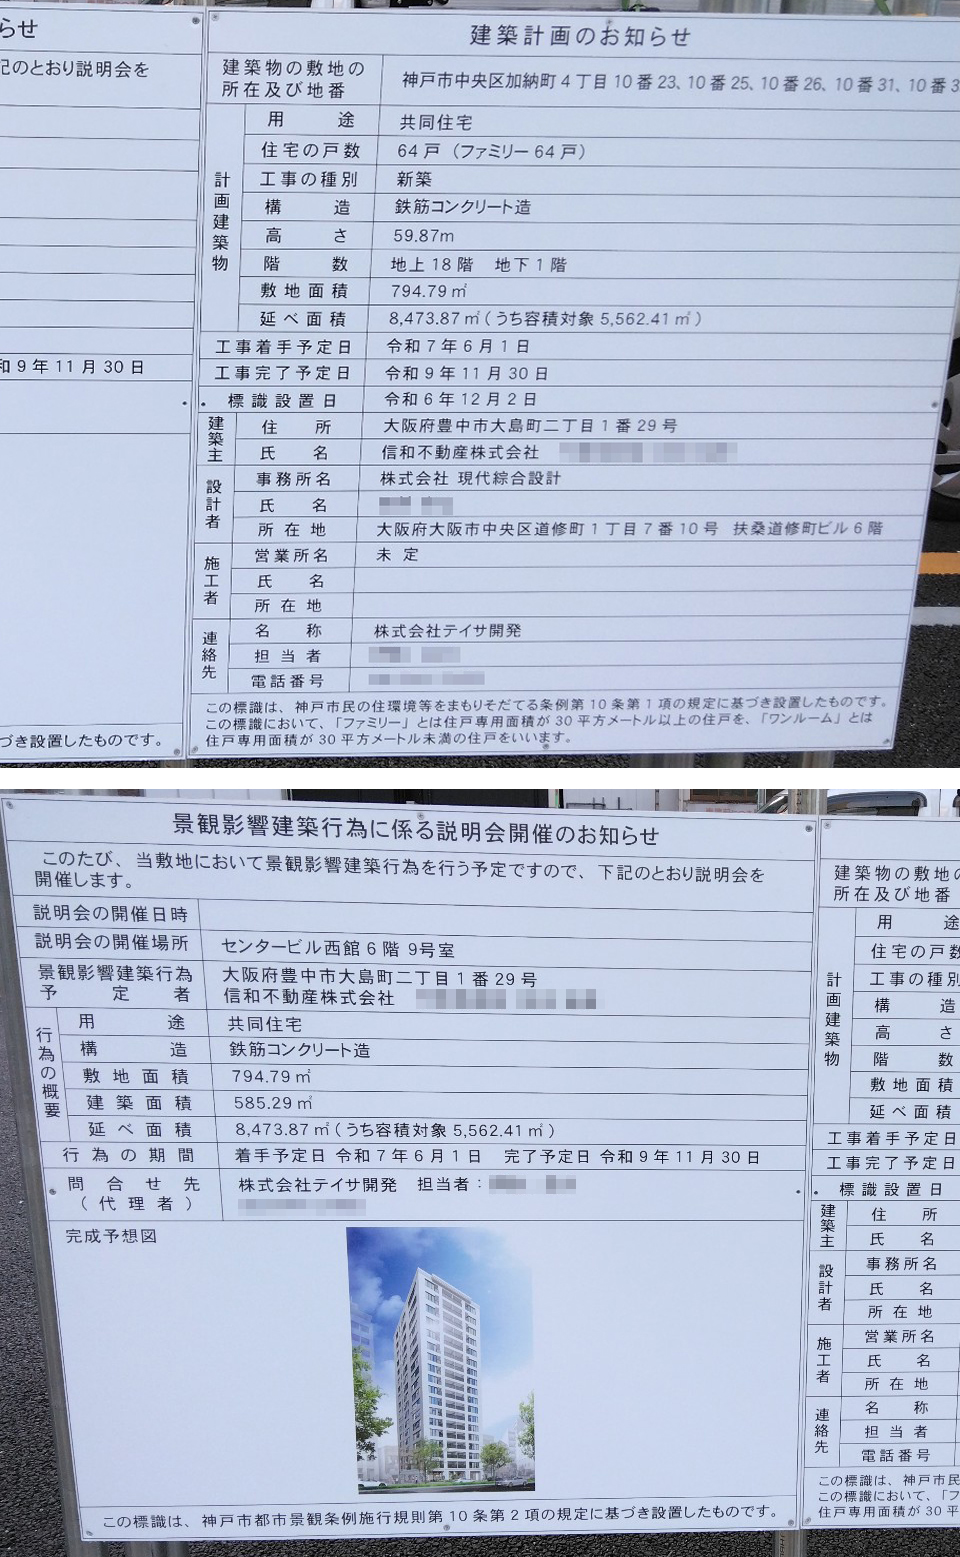 らせ
記のとおり説明会を
和9年11月30日
づき設置したものです。
建築計画のお知らせ
建築物の敷地の所在及び地番 神戸市中央区加納町4丁目10番23、10番25、10番26、10番31、10番3
計画建築物
用途 共同住宅
住宅の戸数 64戸（ファミリー64戸）
工事の種別 新築
構造 鉄筋コンクリート造
高さ 59.87m
階数 地上18階 地下1階
敷地面積 794.79㎡
延べ面積 8,473.87㎡（うち容積対象5,562.41㎡）
工事着手予定日 令和7年6月1日
工事完了予定日 令和9年11月30日
標識設置日 令和6年12月2日
建築主
住所 大阪府豊中市大島町二丁目1番29号
氏名 信和不動産株式会社
設計者
事務所名 株式会社 現代綜合設計
氏名
所在地 大阪府大阪市中央区道修町1丁目7番10号 扶桑道修町ビル6階
施工者
営業所名 未定
氏名
所在地
連絡先
名称 株式会社テイサ開発
担当者
電話番号
この標識は、神戸市民の住環境等をまもりそだてる条例第10条第1項の規定に基づき設置したものです。
この標識において、「ファミリー」とは住戸専用面積が30平方メートル以上の住戸を、「ワンルーム」とは
住戸専用面積が30平方メートル未満の住戸をいいます。
景観影響建築行為に係る説明会開催のお知らせ
このたび、当敷地において景観影響建築行為を行う予定ですので、下記のとおり説明会を
開催します。
説明会の開催日時
説明会の開催場所 センタービル西館6階 9号室
景観影響建築行為予定者 大阪府豊中市大島町二丁目1番29号
信和不動産株式会社
行為の概要
用途 共同住宅
構造 鉄筋コンクリート造
敷地面積 794.79㎡
建築面積 585.29㎡
延べ面積 8,473.87㎡（うち容積対象5,562.41㎡）
行為の期間 着手予定日 令和7年6月1日 完了予定日 令和9年11月30日
問合せ先（代理者） 株式会社テイサ開発 担当者：
完成予想図
この標識は、神戸市都市景観条例施行規則第10条第2項の規定に基づき設置したものです。
建築物の敷地の
所在及び地番
計画建築物
用途
住宅の戸数
工事の種別
構造
高さ
階数
敷地面積
延べ面積
工事着手予定日
工事完了予定日
標識設置日
建築主
住所
氏名
設計者
事務所名
氏名
所在地
施工者
営業所名
氏名
所在地
連絡先
名称
担当者
電話番号
この標識は、神戸市民
この標識において、「フ
住戸専用面積が30平